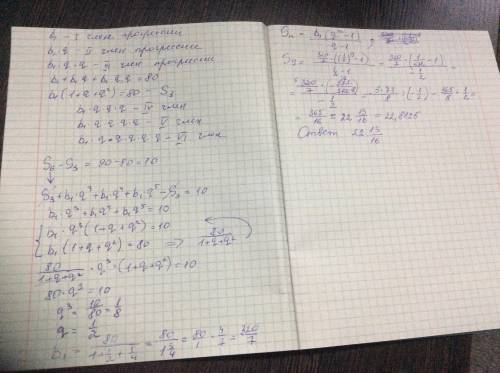 b₁ - I член прогрессии
b₁·q - II член прогрессии
b₁·q·q - III член прогрессии
b₁+b₁q+b₁q·q=80
b₁(1+q+q²)=80 - S₃
b₁·q·q·q - IV член
b₁·q·q·q·q - V член
b₁·q·q·q·q·q - VI член
S₆-S₃ = 90-80=10
↓
S₃+b₁·q³+b₁q⁴+b₁q⁵-S₃=10
b₁·q³+b₁q⁴+b₁q⁵=10
{ b₁·q³(1+q+q²)=10
b₁(1+q+q²)=80 => 80/(1+q+q²)
80/(1+q+q²)·q³·(1+q+q²)=10
80·q³=10
q³=10/80=1/8
q=1/2
b₁=80/(1+1/2+1/4)=80/(1 3/4)=80/1·4/7=320/7
Sₙ=b₁(qⁿ-1)/(q-1),
=365/16=22 13/16=22,8125
Ответ 22 13/16